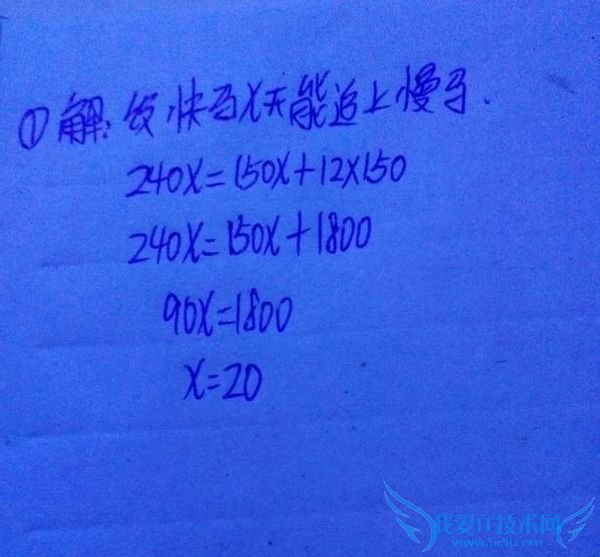 ①解:设快马x天能追上慢马.
240x=150x+12×150
240x=150x+1800
90x=1800
x=20
我爱IT技术网